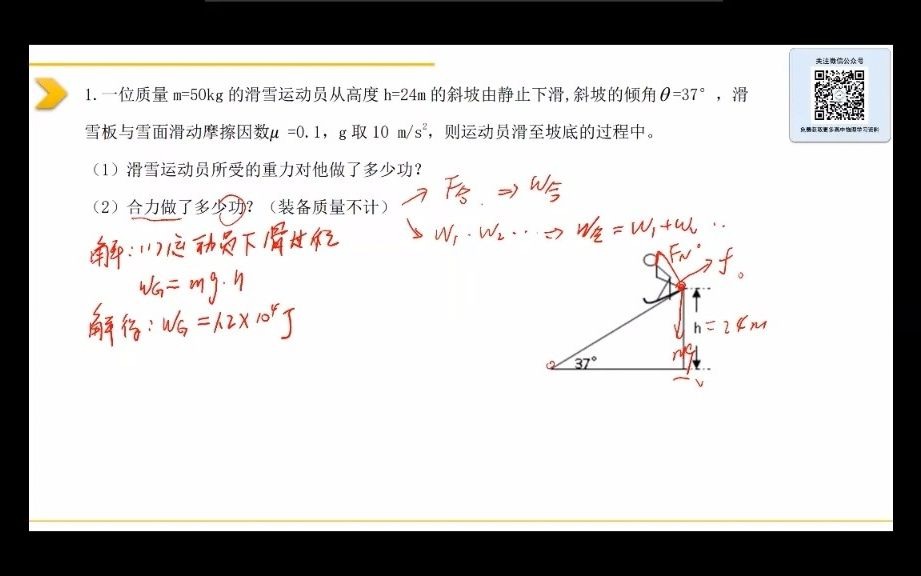 关注微信公众号
免费获取更多高中物理学习资料
1.一位质量 m=50kg 的滑雪运动员从高度 h=24m 的斜坡由静止下滑,斜坡的倾角θ=37°，滑
雪板与雪面滑动摩擦因数μ =0.1，g 取 10 m/s²，则运动员滑至坡底的过程中。
（1）滑雪运动员所受的重力对他做了多少功？
（2）合力做了多少功？（装备质量不计）
→ F合 ⇒ W合
↘ W₁. W₂ ⋯ ⇒ W合 = W₁+W₂ ⋯
解:(1)运动员下滑过程
WG = mg.h
解得: WG = 1.2×10⁴J
FN
f
h = 24m
mg
37°